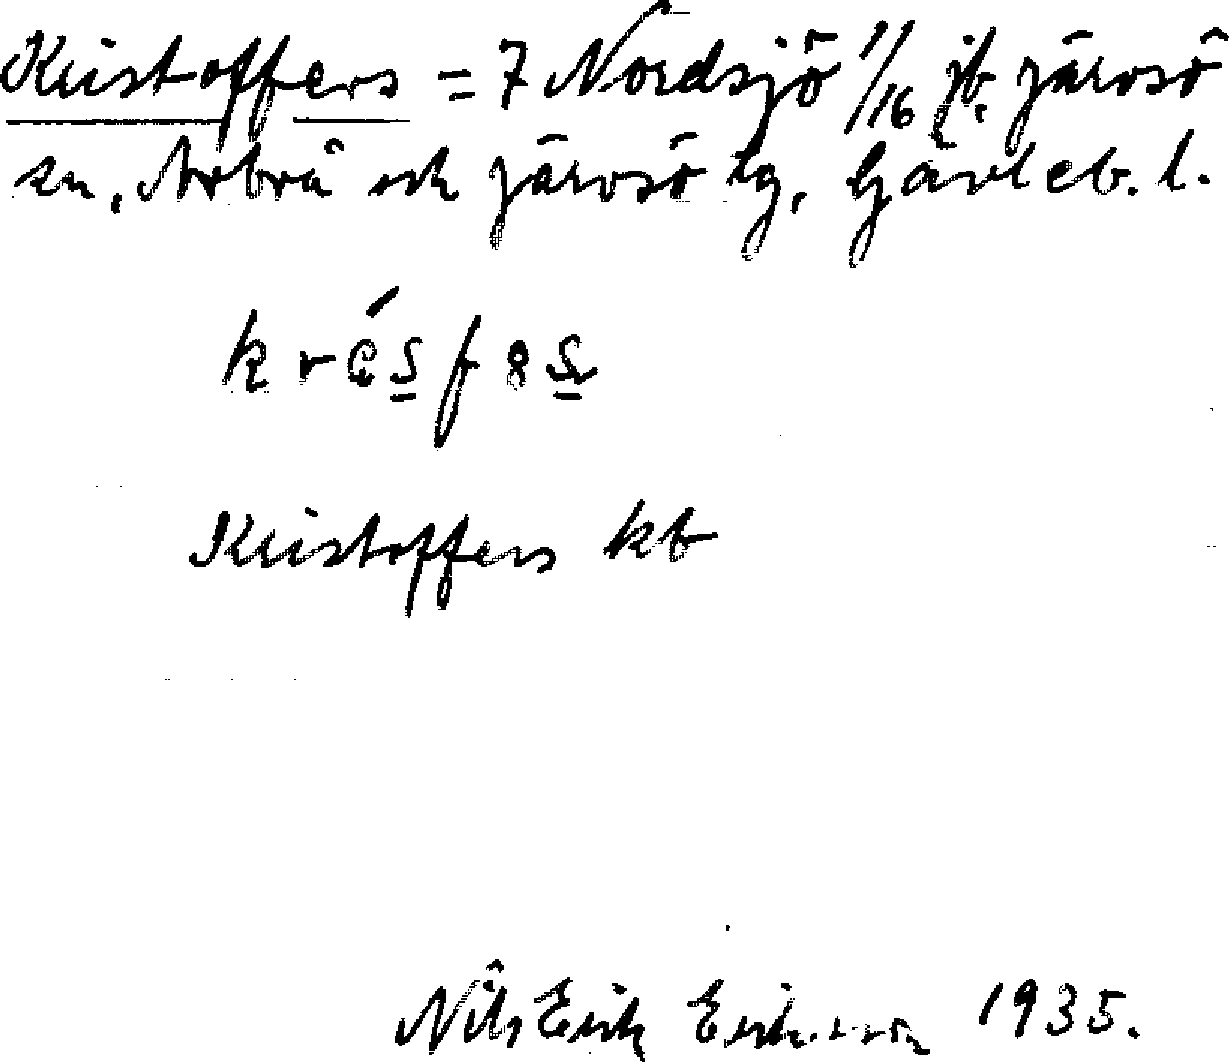 Kristoffers = 7 Nordsjö 1/16 jb. Järvsö
sn, Arbrå och Järvsö tg, Gävleb. l.
Kristoffers kb
Nils Erik Eriksson 1935.